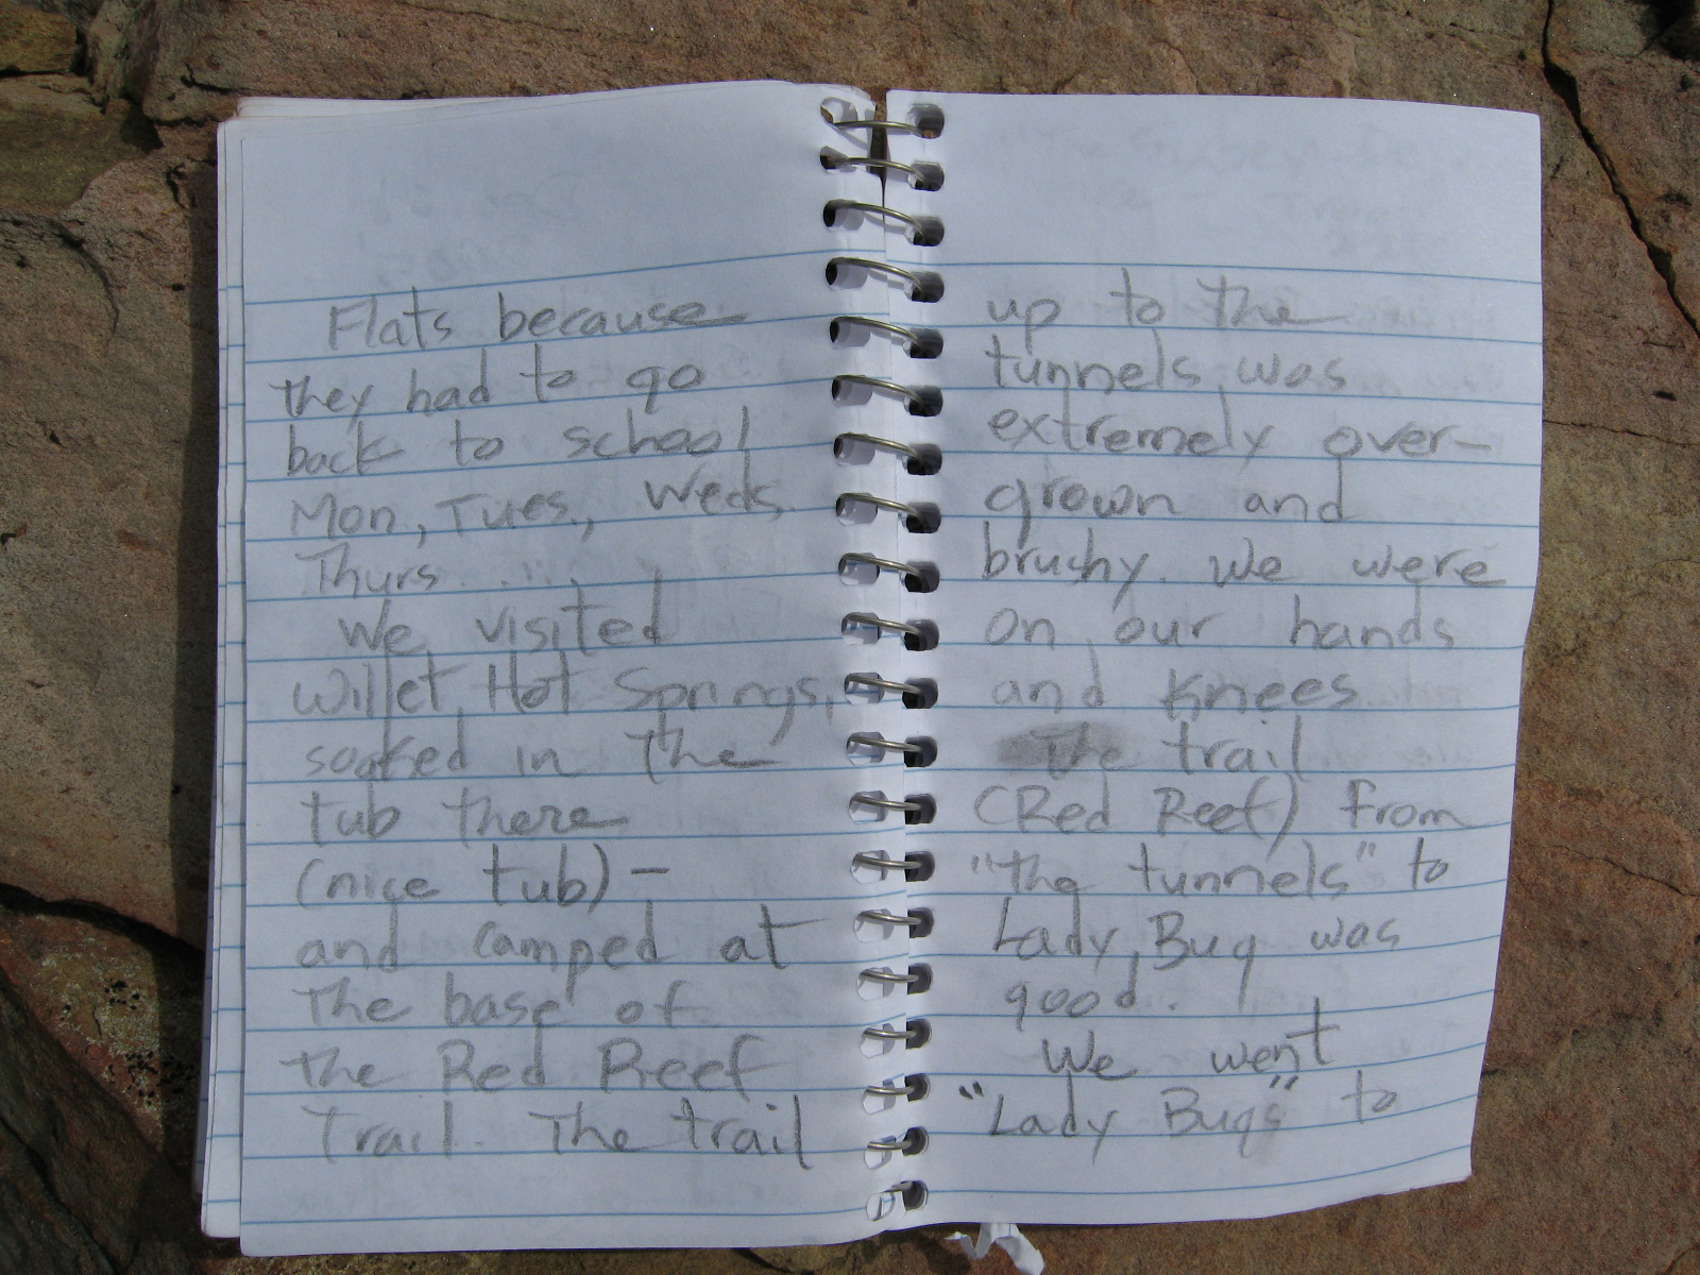 Flats because
they had to go
back to school
Mon, Tues., Weds.
Thurs ....
We visited
Willet Hot Springs,
soaked in the
tub there
(nice tub) –
and camped at
the base of
the Red Reef
Trail. The trail
up to the
tunnels was
extremely over-
grown and
brushy. We were
on our hands
and knees.
The trail
(Red Reef) from
"the tunnels" to
Lady Bug was
good.
We went
"Lady Bugs" to